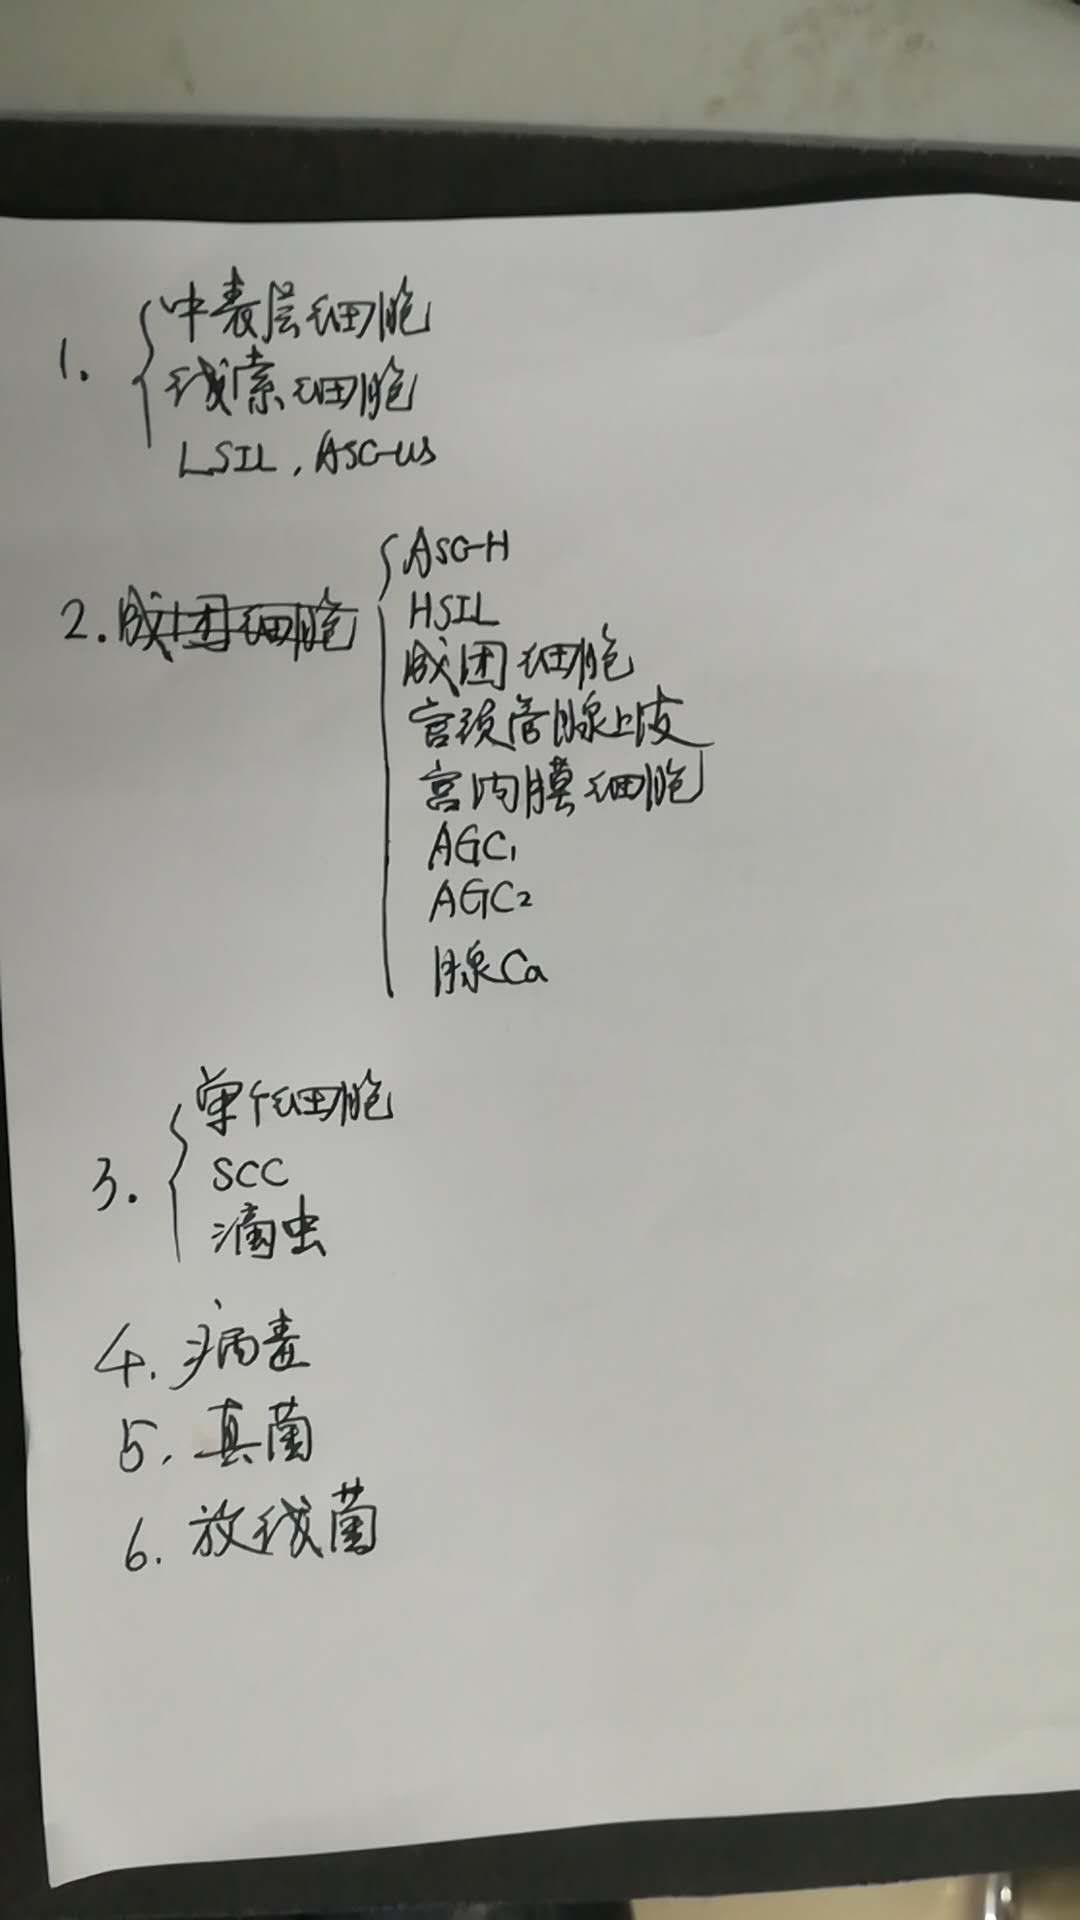 1. 中表层细胞
线索细胞
LSIL, ASC-US
2. 成团细胞
ASC-H
HSIL
成团细胞
宫颈管腺上皮
宫内膜细胞
AGC1
AGC2
腺Ca
3. 单个细胞
SCC
滴虫
4. 病毒
5. 真菌
6. 放线菌